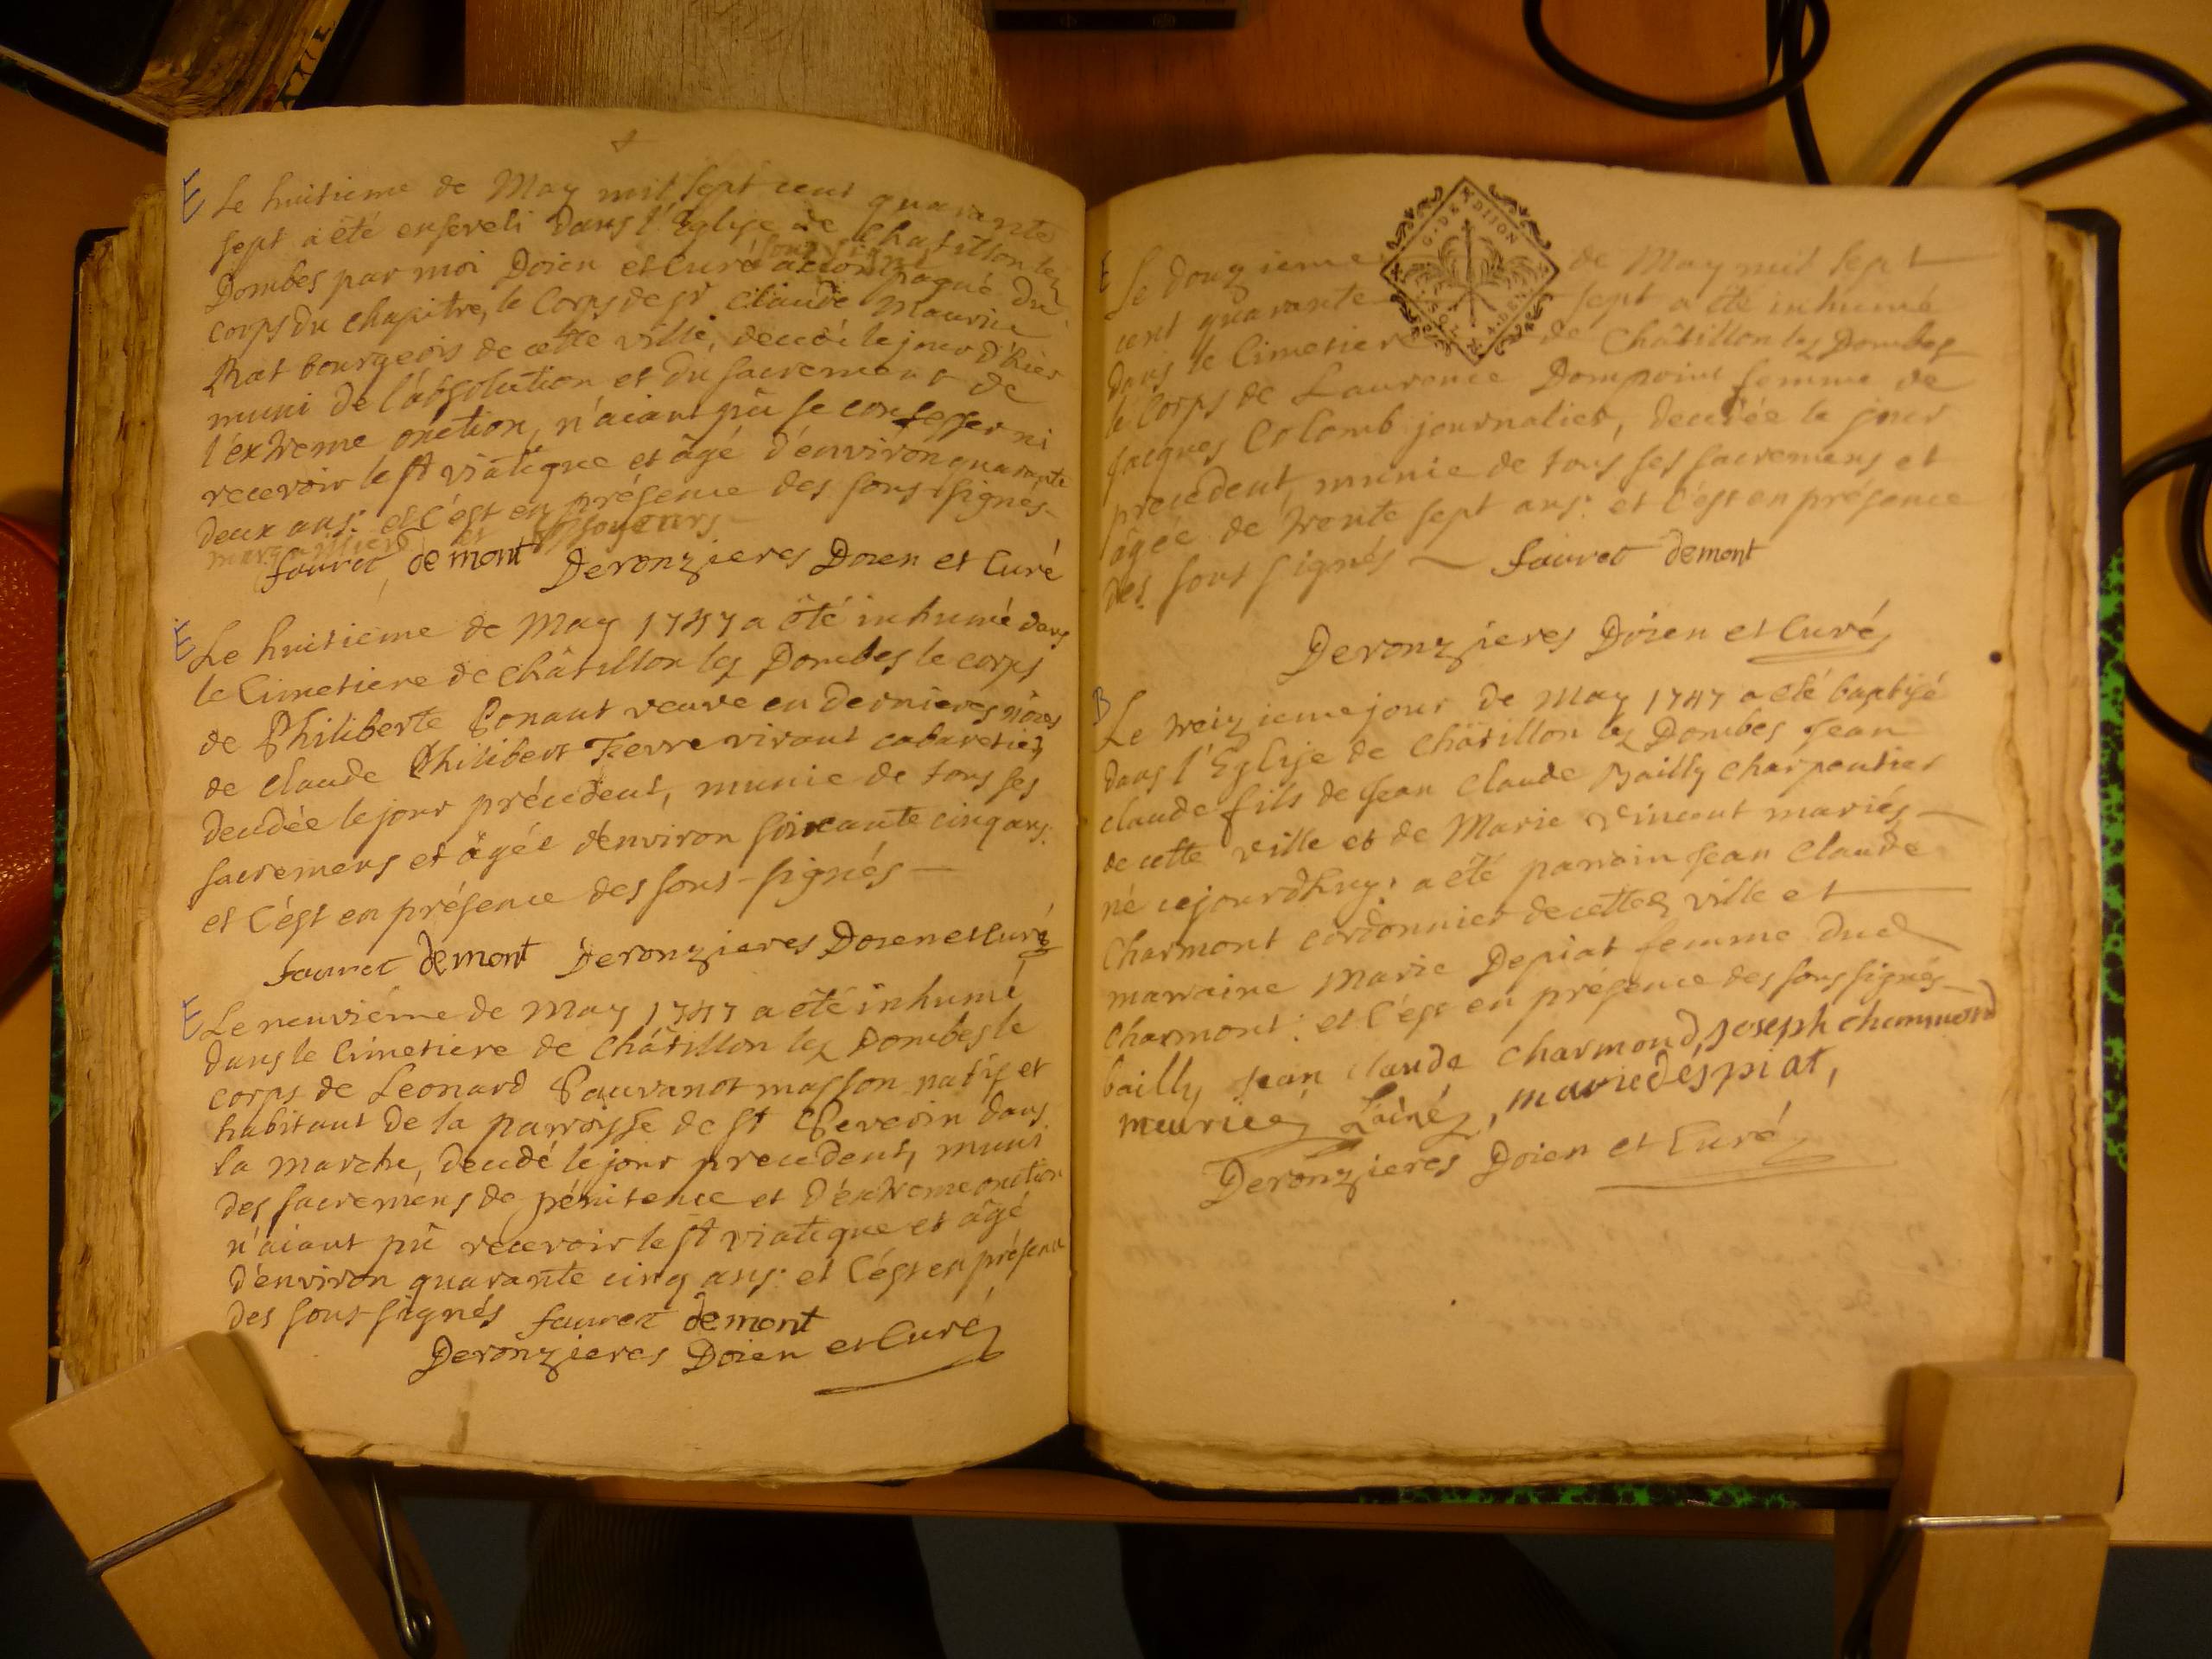 E Le huitieme de May mil sept cent quarante
sept a été enseveli dans l'Eglise de Chatillon lez
Dombes par moi Doien et Curé sous signé accompagné du
corps du chapitre, le Corps de sr Claude Maurice
bourgeois de cette ville, decédé le jour d'hier
muni de l'absolution et du sacrement de
l'extreme onction, n'aiant pû se confesser ni
recevoir le st viatique et âgé d'environ quarante
deux ans: et c'est en présence des sous-signés
marguilliers et
fauret demont Deronzieres Doien et Curé
E Le huitieme de May 1747 a été inhumé dans
le Cimetiere de Châtillon lez Dombes le corps
de Philiberte Ponant veuve en dernieres nôces
de Claude Philibert Ferre vivant cabaretier,
decedée le jour précedent, munie de tous ses
sacremens et âgée d'environ soixante cinq ans:
et c'est en présence des sous-signés
fauret demont Deronzieres Doien et Curé
E Le neuviéme de May 1747 a été inhumé
dans le Cimetiere de Châtillon lez Dombes le
corps de Leonard Pauvanot masson natif et
habitant de la parroisse de st dans
la marche, decedé le jour precedent, muni
des sacremens de pénitence et d'extreme onction
n'aiant pû recevoir le st viatique et âgé
d'environ quarante cinq ans: et c'est en présence
des sous-signés fauret demont
Deronzieres Doien et Curé
G. DE DIJON
E Le douzieme de May mil sept
cent quarante sept a été inhumé
dans le Cimetiere de Châtillon lez Dombes
le Corps de Laurence Dompoint femme de
Jacques Colomb journalier, decedée le jour
precedent, munie de tous ses sacremens et
âgée de trente sept ans: et c'est en présence
des sous signés fauret demont
Deronzieres Doien et Curé
B Le treizieme jour de May 1747 a été baptisé
dans l'Eglise de Châtillon lez Dombes Jean
Claude fils de Jean Claude Bailly charpentier
de cette ville et de Marie Vincent mariés
né cejourdhuy: a été parrain Jean Claude
Charmont cordonnier de cette ville et
marraine Marie Depiat femme dud
Charmont: et c'est en présence des sous signés
bailly Jean Claude Charmond, Joseph
meurice, Lainé, marie déspiat,
Deronzieres Doien et Curé